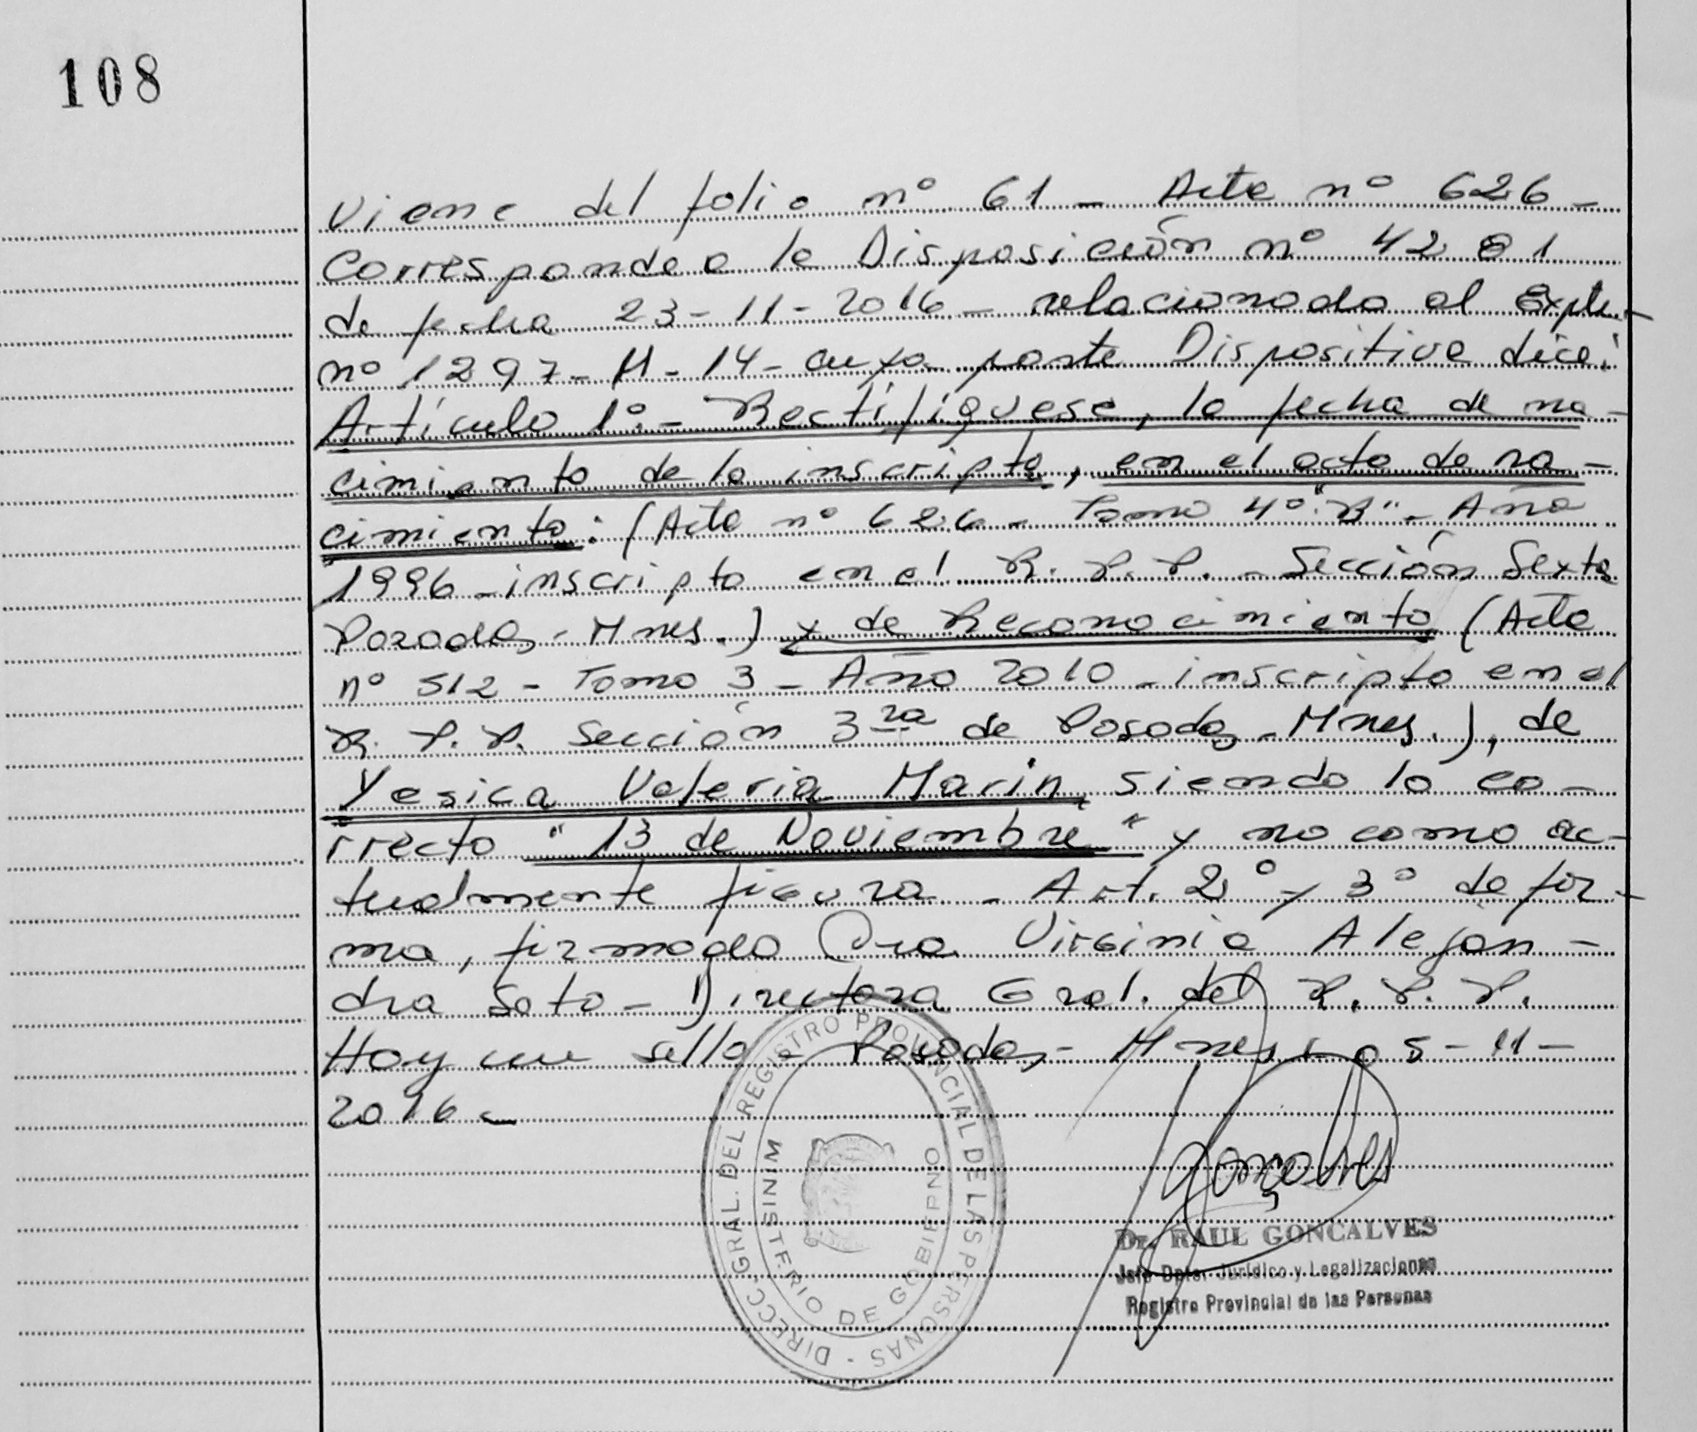 108
Viene del folio nº 61 - Acta nº 626 -
Corresponde a la Disposición nº 4281
de fecha 23-11-2016 - relacionado al Expte.-
nº 1297-M-14- cuya parte Dispositiva dice:
Artículo 1º.- Rectifíquese, la fecha de na-
cimiento de la inscripta, en el acta de na-
cimiento: (Acta nº 626 - Tomo 4º "B" - Año
1996 - inscripto en el R. P. P. - Sección Sexta
Posadas - Mnes.) y de Reconocimiento (Acta
nº 512 - Tomo 3 - Año 2010 - inscripto en el
R. P. P. Sección 3ra de Posadas - Mnes.), de
Yesica Valeria Marin, siendo lo co-
rrecto "13 de Noviembre" y no como ac-
tualmente figura - Art. 2º y 3º de for-
ma, firmado Dra. Virginia Alejan-
dra Soto - Directora Gral. del R. P. P.
Hay un sello - Posadas,- Mnes, 05-11-
2016 -
DIRECC. GRAL. DEL REGISTRO PROVINCIAL DE LAS PERSONAS -
MINISTERIO DE GOBIERNO
Goncalves
Dr. RAUL GONCALVES
Jefe Dpto. Jurídico y Legalizaciones
Registro Provincial de las Personas